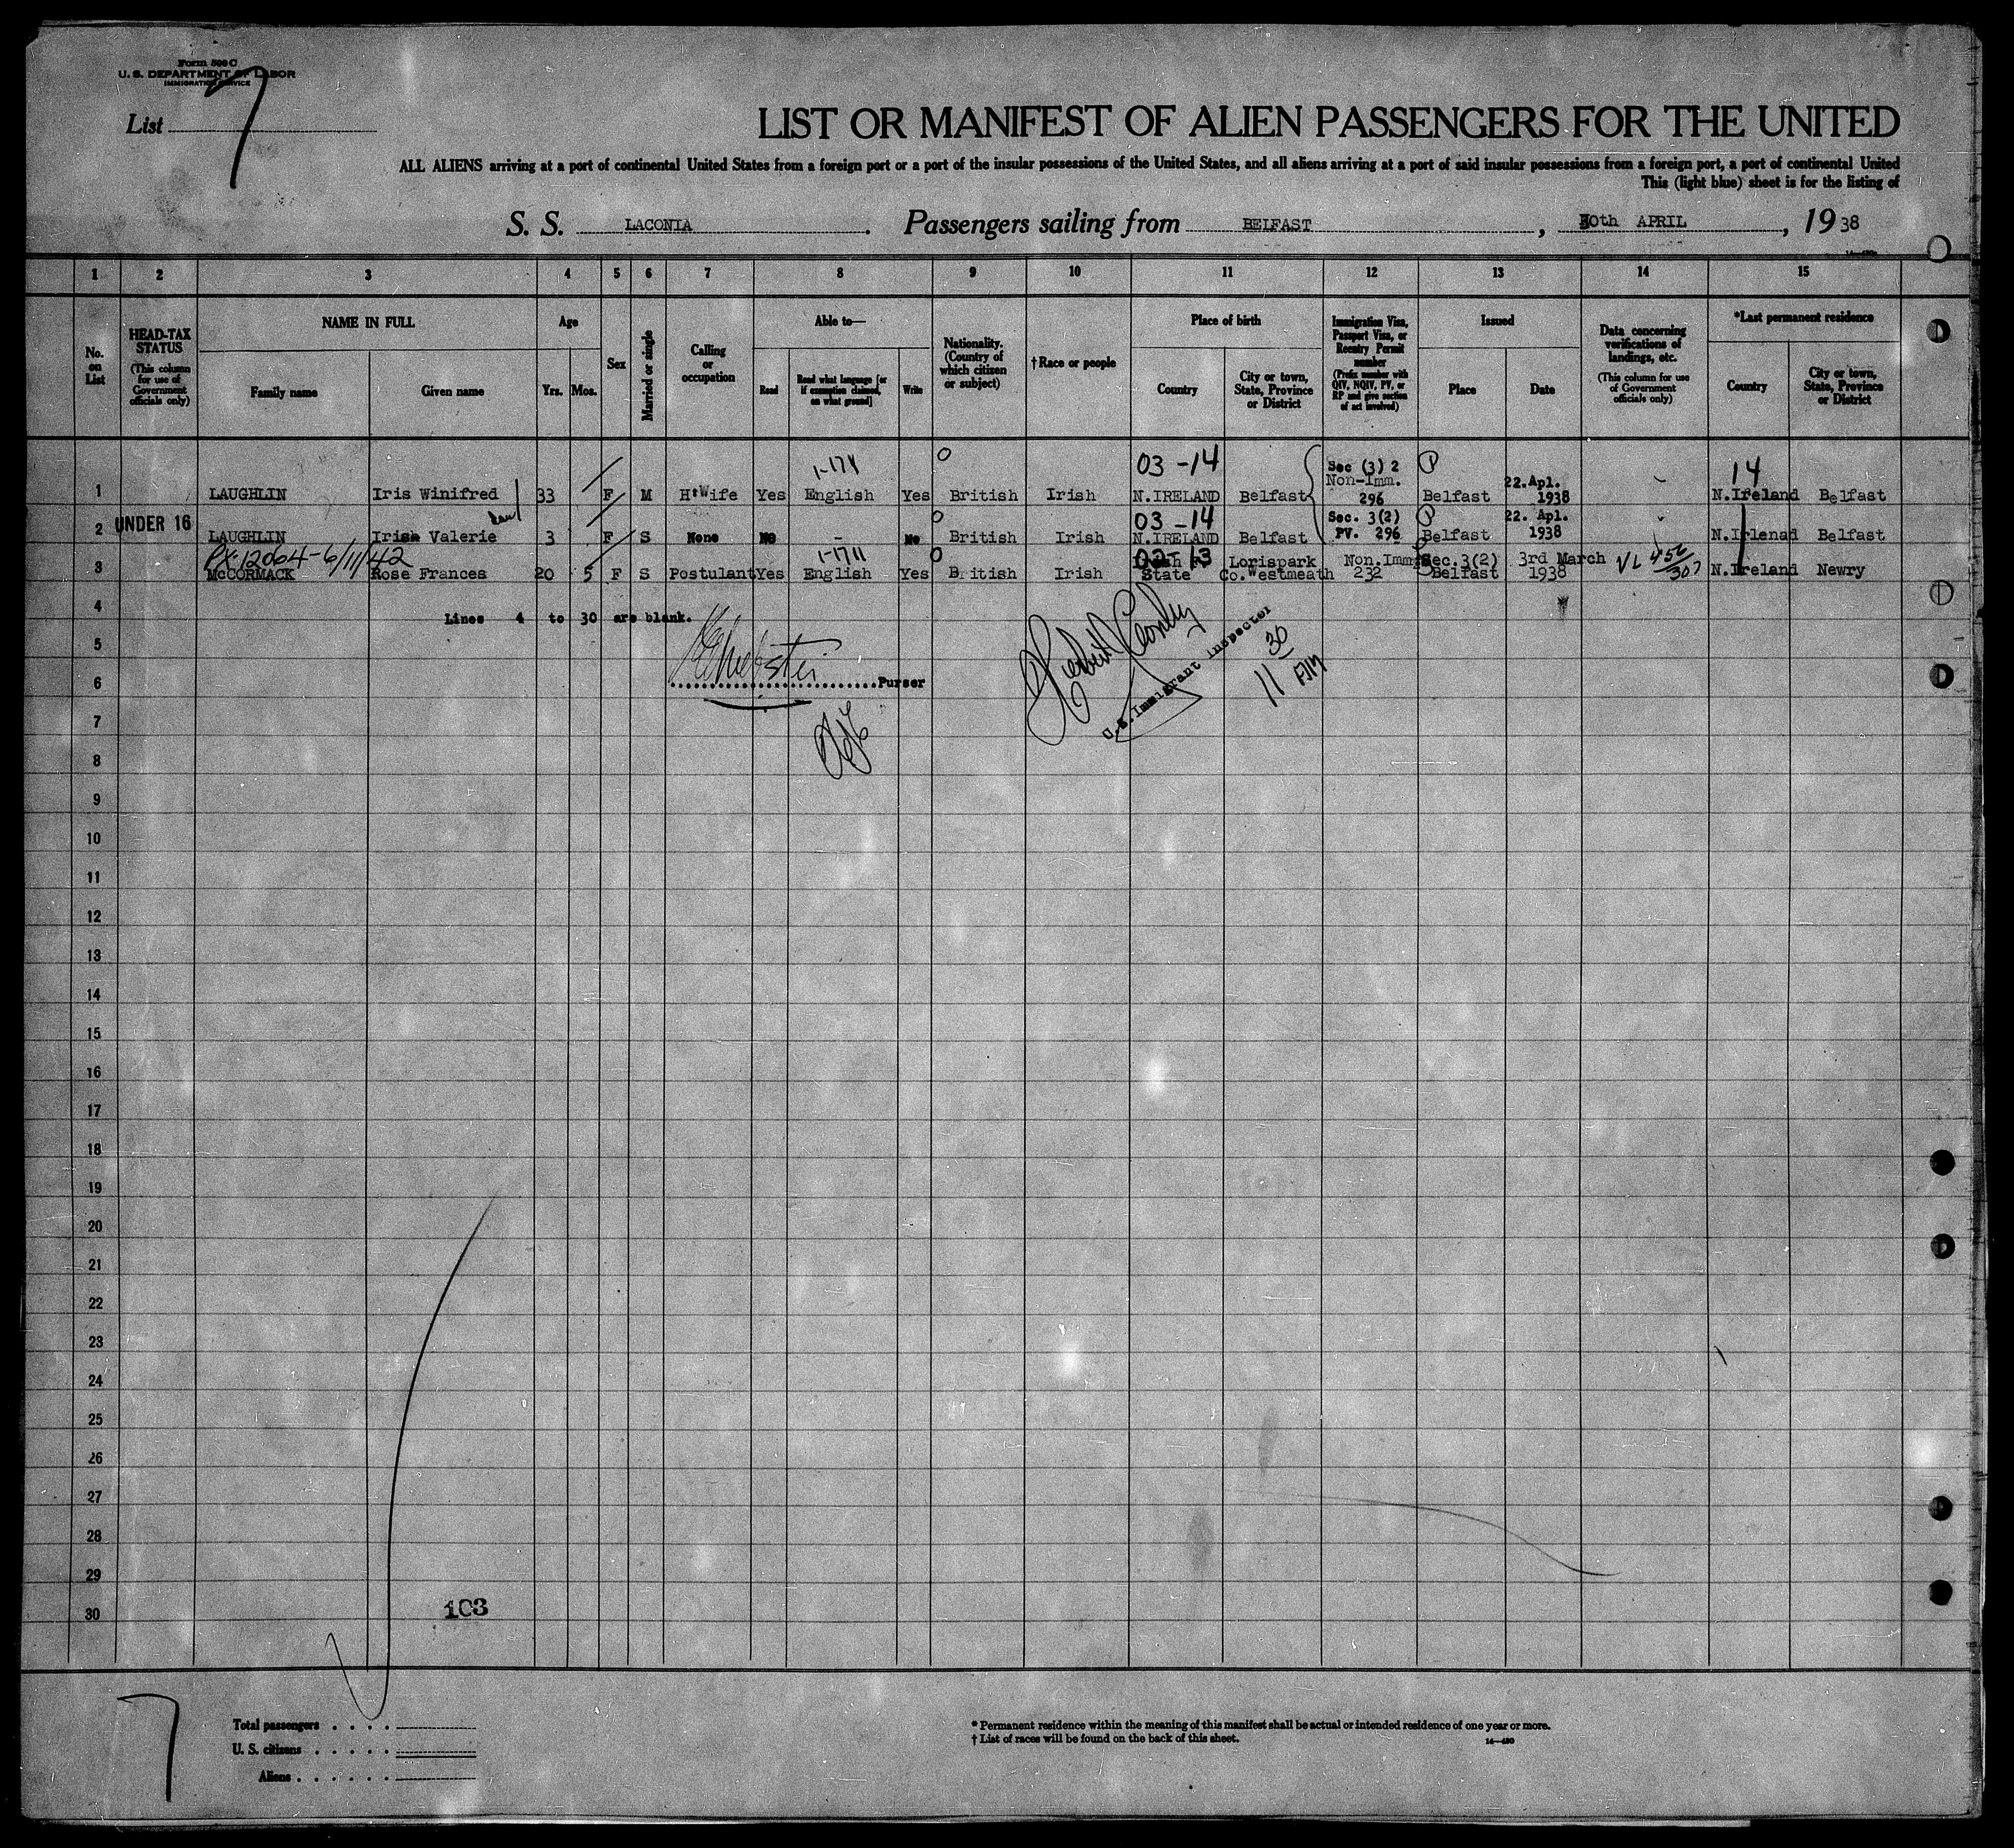 Form 500 C
U. S. DEPARTMENT OF LABOR
IMMIGRATION SERVICE
List 7
LIST OR MANIFEST OF ALIEN PASSENGERS FOR THE UNITED
ALL ALIENS arriving at a port of continental United States from a foreign port or a port of the insular possessions of the United States, and all aliens arriving at a port of said insular possessions from a foreign port, a port of continental United
This (light blue) sheet is for the listing of
S. S. LACONIA. Passengers sailing from BELFAST, 30th APRIL, 1938
1 2 3 4 5 6 7 8 9 10 11 12 13 14 15
No. on List
HEAD-TAX STATUS
(This column for use of Government officials only)
NAME IN FULL
Family name
Given name
Age
Yrs. Mos.
Sex
Married or single
Calling or occupation
Able to—
Read
Read what language [or if exemption claimed, on what ground]
Write
Nationality. (Country of which citizen or subject)
† Race or people
Place of birth
Country
City or town, State, Province or District
Immigration Visa, Passport Visa, or Reentry Permit number
(Prefix number with QIV, NQIV, PV, or RP and give section of act involved)
Issued
Place
Date
Data concerning verifications of landings, etc.
(This column for use of Government officials only)
*Last permanent residence
Country
City or town, State, Province or District
1-174 03-14 Sec (3) 2 P 14
Non-Imm. 22.Apl.
1 LAUGHLIN Iris Winifred 33 F M H'Wife Yes English Yes British Irish N.IRELAND Belfast 296 Belfast 1938 N.Ireland Belfast
UNDER 16 03-14 Sec. 3(2) P 22. Apl.
2 LAUGHLIN Irish Valerie 3 F S None No - No British Irish N.IRELAND Belfast PV. 296 Belfast 1938 N.Irlenad Belfast
PX-12064-6/11/42 1-1711 13 Lorispark Non.Imm Sec.3(2) 3rd March VL 456/307
3 McCORMACK Rose Frances 20 5 F S Postulant Yes English Yes British Irish State Co.Westmeath 232 Belfast 1938 N.Ireland Newry
4
Lines 4 to 30 are blank.
5
6 Purser
U.S. Immigrant Inspector
11 30
7
8
9
10
11
12
13
14
15
16
17
18
19
20
21
22
23
24
25
26
27
28
29
30
103
7
Total passengers . . . .
U. S. citizens . . . . .
Aliens . . . . . .
* Permanent residence within the meaning of this manifest shall be actual or intended residence of one year or more.
† List of races will be found on the back of this sheet.
14—430